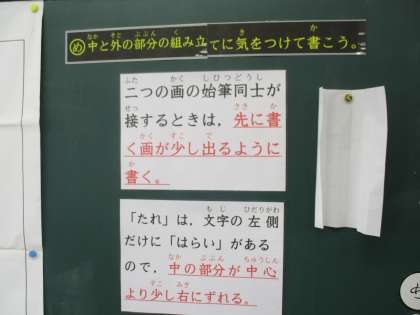 め中と外の部分の組み立てに気をつけて書こう。
二つの画の始筆同士が
接するときは，先に書
く画が少し出るように
書く。
「たれ」は，文字の左側
だけに「はらい」がある
ので，中の部分が中心
より少し右にずれる。